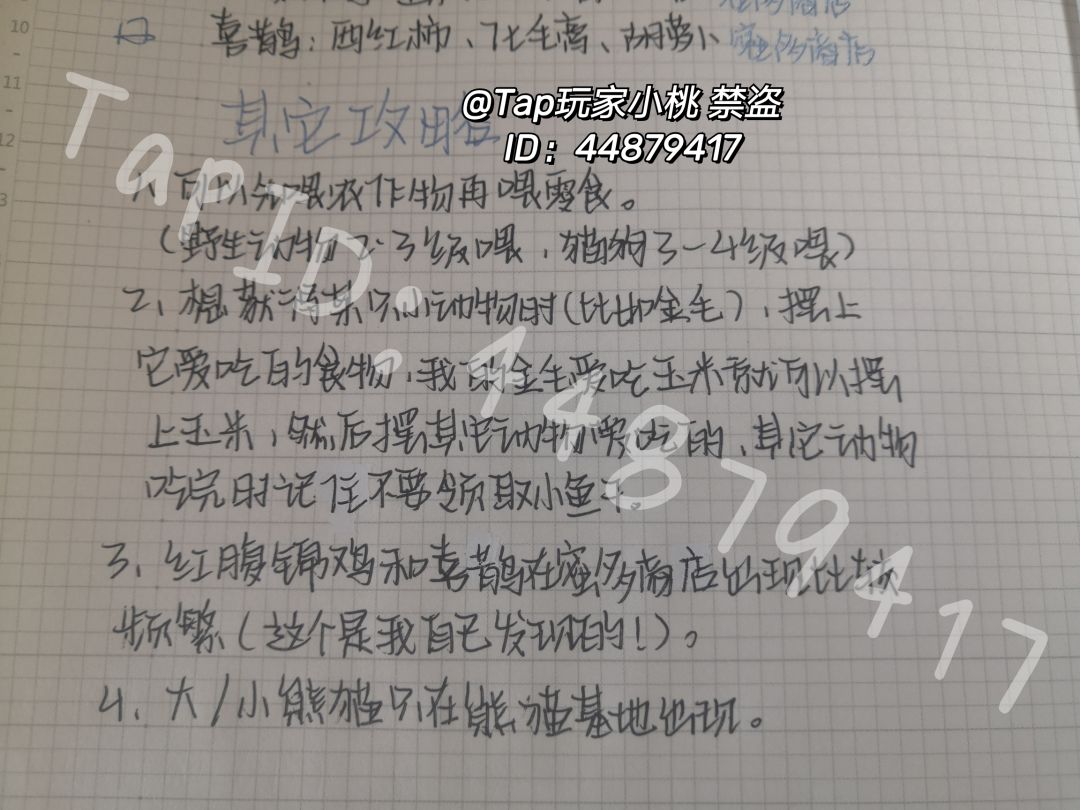 喜鹊：西红柿、花生、胡萝卜 蜜多商店
@Tap玩家小桃 禁盗
ID：44879417
其它攻略
1、可以先喂农作物再喂零食。
（野生动物2-3级喂，猫狗3-4级喂）
2、想获得某只小动物时（比如金毛），摆上
它爱吃的食物，我的金毛爱吃玉米就可以摆
上玉米，然后摆其它动物爱吃的，其它动物
吃完时记住不要领取小鱼干。
3、红腹锦鸡和喜鹊在蜜多商店出现比较
频繁（这个是我自己发现的！）。
4、大/小熊猫只在熊猫基地出现。
TapID：44879417